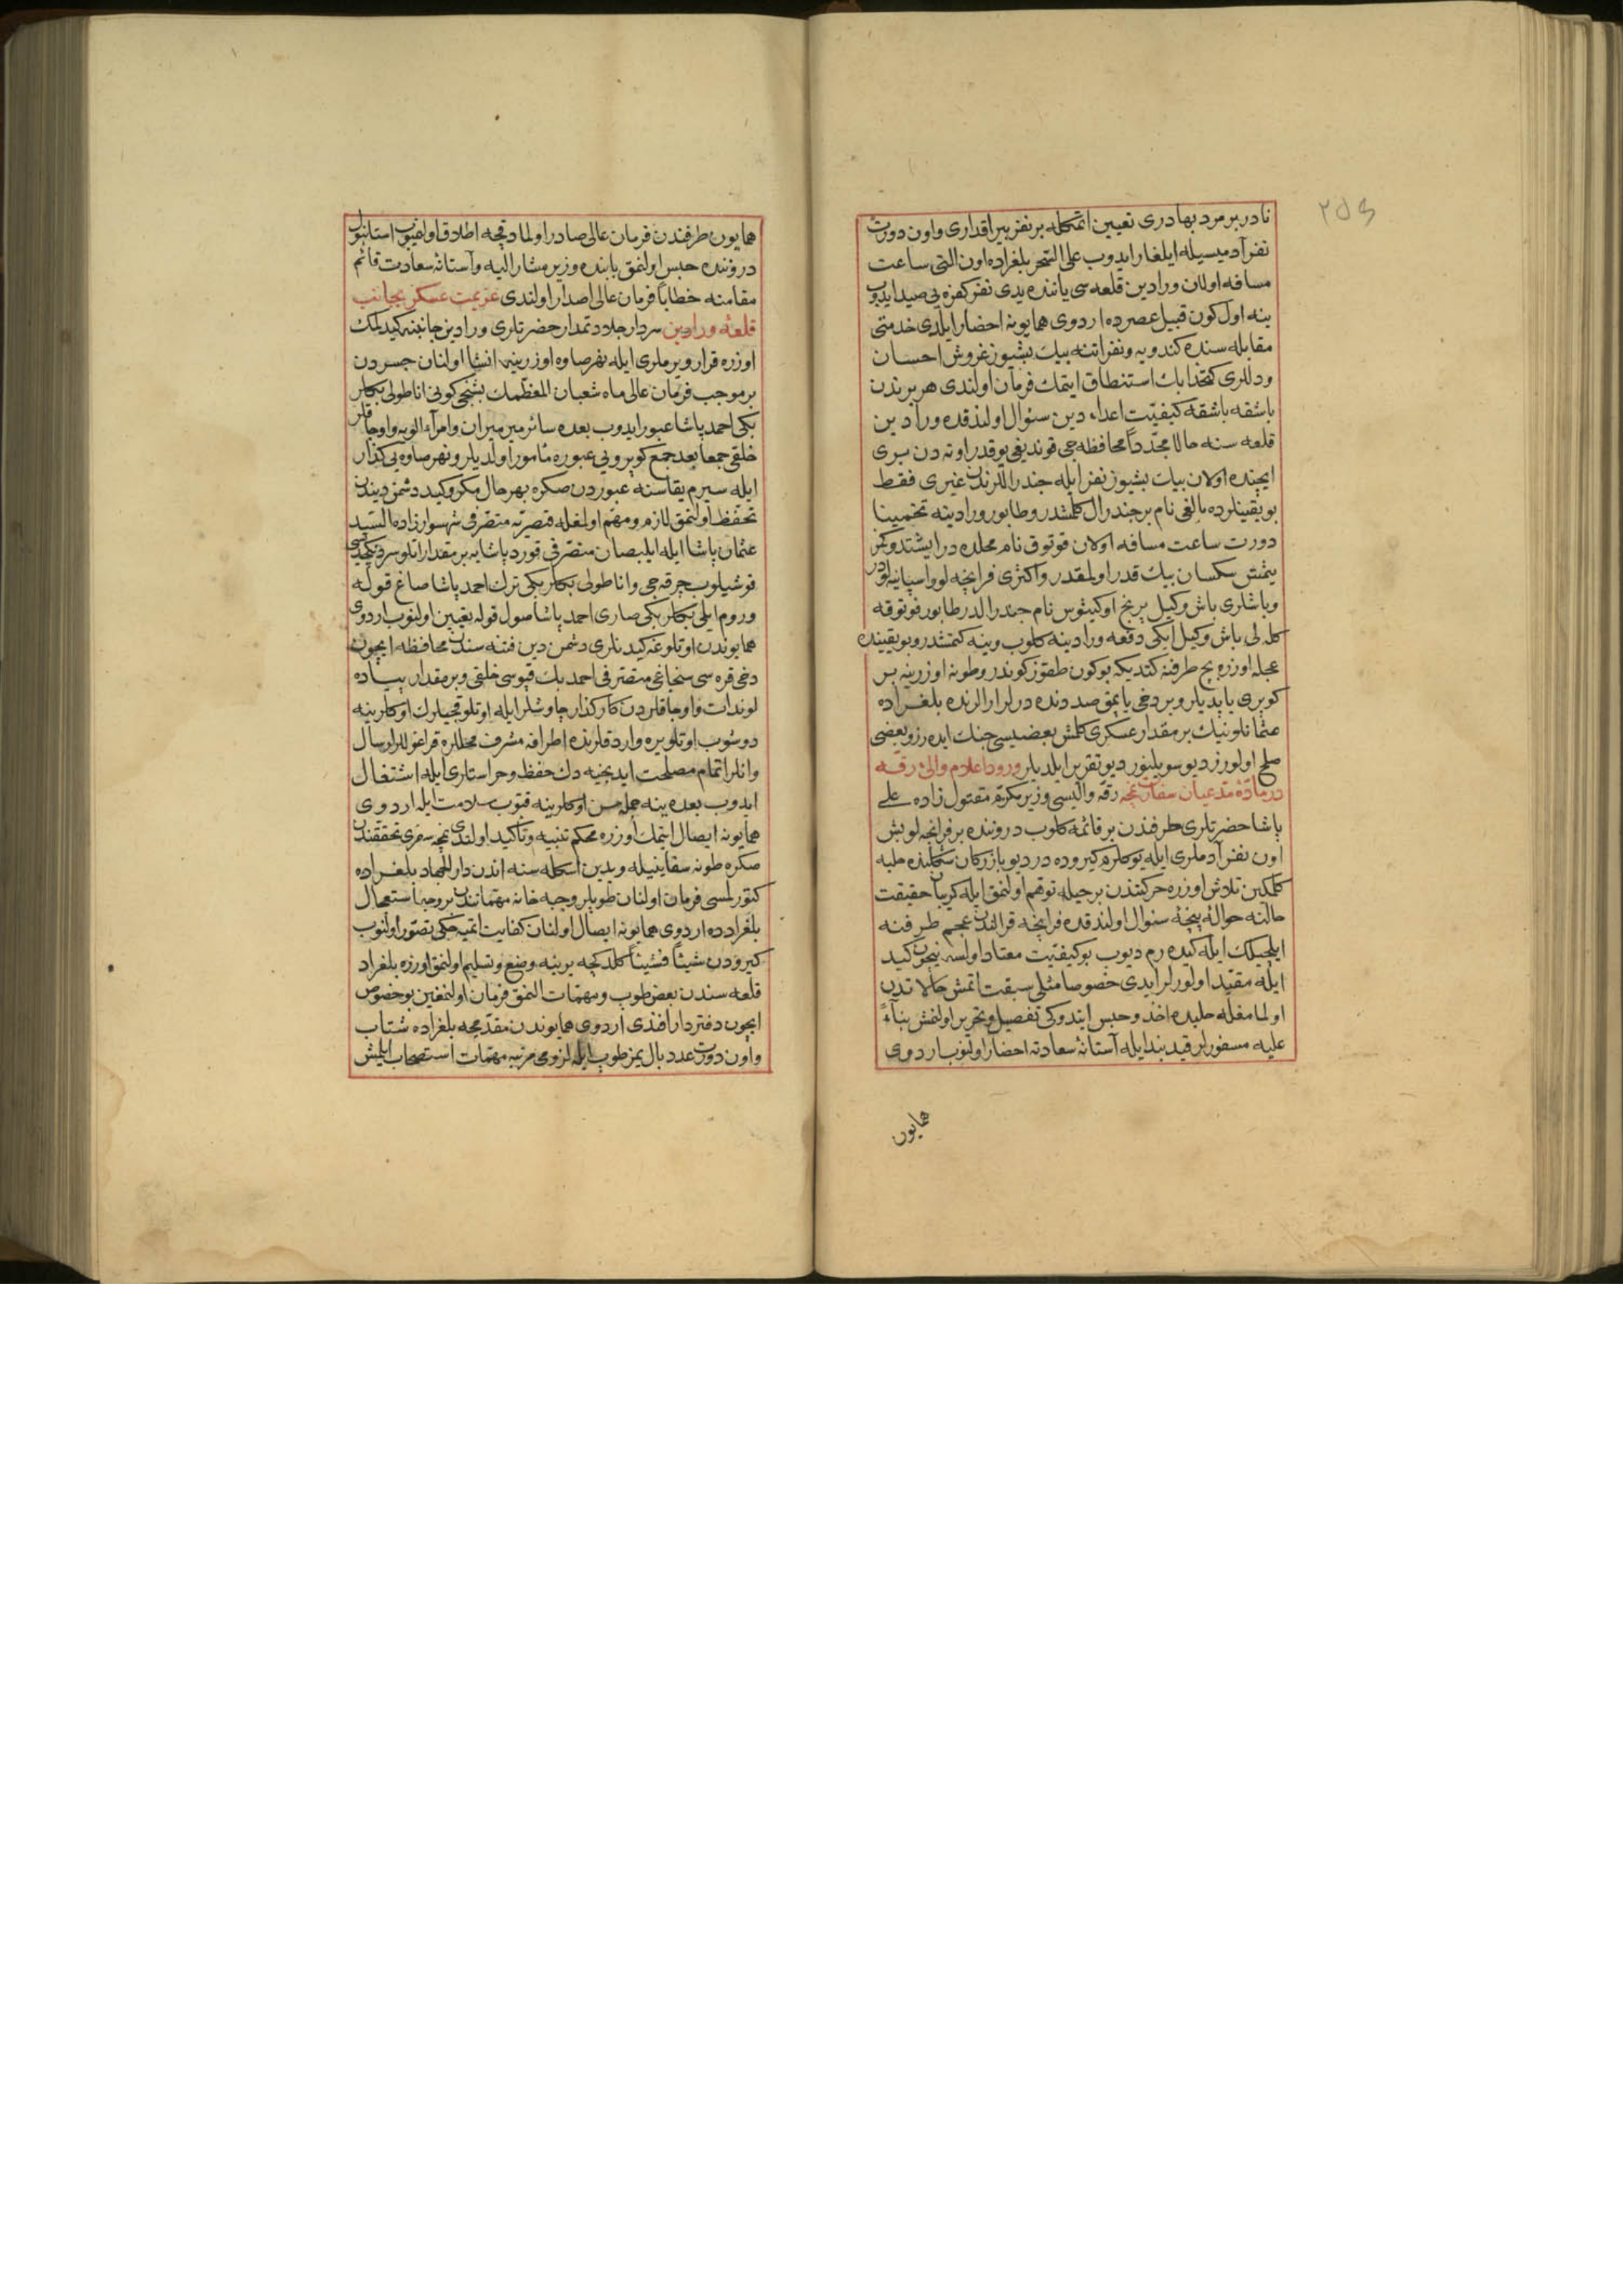 نادر بر مرد بهادری تعیین اتمکله بر نفر بیراقداری و اون دورت
نفر آدمیسیله ایلغار ایدوب علی السحر بلغراده اون التی ساعت
مسافه اولان ورادین قلعه سی یاننده یدی نفر کفره یی صید ایدوب
ینه اول کون قبیل عصرده اردوی همایونه احضار ایلدی خدمتی
مقابله سنده کندویه و نفراتنه بیك بشیوز غروش احسان
و دللری کتخدا بك استنطاق ایتمك فرمان اولندی هر برندن
باشقه باشقه کیفیت اعداء دین سئوال اولندقده ورادین
قلعه سنه حالا مجدداً محافظه جی قوندیغی یوقدر اوته دن بری
ایچنده اولان بیك بشیوز نفر ایله جندراللرندن غیری فقط
بو یقینلرده بالفی نام بر جندرال کلمشدر و طابور ورادینه تخمینا
دورت ساعت مسافه اولان فوتوق نام محلده در ایشتدوکمز
یتمش سکسان بیك قدر اولمقدر و اکثری فرانچه لو و اسپانیه لودر
و باشلری باش وکیل پرنج اوکینوس نام جندرالدر طابور فوتوقه
کله لی باش وکیل ایکی دفعه ورادینه کلوب و ینه کتمشدر و بو یقینده
عجله اوزره بچ طرفنه کتدیکه بو کون طقوز کوندر و طونه اوزرینه بر
کوپری یاپدیلر و بر دخی یاپمق صددنده درلر ارالرنده بلغراده
عثمانلونیك بر مقدار عسکری کلمش بعضیسی جنك ایده رز و بعضی
صلح اولورز دیو سویلینور دیو تقریر ایلدیلر ورود اعلام والئ رقه
در مادهٔ مدعیان سفارت عجم رقه والیسی وزیر مکرم مقتول زاده علی
پاشا حضرتلری طرفندن بر قائمه کلوب دروننده بر فرانچه لو بش
اون نفر آدملری ایله یوکلرم کیروده در دیو بازرکان شکلنده حلبه
کلمکین تلاش اوزره حرکتندن بر حیله توهم اولنمق ایله کریبان حقیقت
حالنه حوالهٔ پنجهٔ سئوال اولندقده فرانچه قرالندن عجم طرفنه
ایلچیلك ایله کیده رم دیوب بو کیفیت معتاد اولسه نیچون کید
ایله مقید اولورلر ایدی خصوصا مثلی سبقت اتمش حالاتدن
اولمامغله حلبده اخذ و حبس ایندوکی تفصیل و تحریر اولنمش بناءً
علیه مسفورلر قید بند ایله آستانهٔ سعادته احضار اولنوب اردوی
همایون
همایون طرفندن فرمان عالی صادر اولمادقجه اطلاق اولنمیوب استانبول
دروننده حبس اولنمق بابنده وزیر مشار الیه و آستانهٔ سعادت قائم
مقامنه خطاباً فرمان عالی اصدار اولندی عزیمت عسکر بجانب
قلعهٔ ورادین سردار جلادتمدار حضرتلری ورادین جانبنه کیدیلمك
اوزره قرار ویرملری ایله نهر صاوه اوزرینه انشا اولنان جسردن
بر موجب فرمان عالی ماه شعبان المعظمك بشنجی کونی اناطولی بکلر
بکی احمد پاشا عبور ایدوب بعده سائر میر میران و امرآء الویه و اوجاقلر
خلقی جمعا بعد جمع کوپرویی عبوره مأمور اولدیلر و نهر صاوه یی کذار
ایله سیرم یقاسنه عبوردن صکره بهر حال مکر و کید دشمن دیندن
تحفظ اولنمق لازم و مهم اولمغله قیصریه متصرفی شهسوار زاده السید
عثمان پاشا ایله ایلبصان متصرفی قورد پاشایه بر مقدار اتلو سردنکچدی
قوشیلوب چرقه جی و اناطولی بکلر بکی ترك احمد پاشا صاغ قوله
و روم ایلی بکلر بکی صاری احمد پاشا صول قوله تعیین اولنوب اردوی
همایوندن اوتلوغه کیدنلری دشمن دین فتنه سندن محافظه ایچون
دخی قره سی سنجاغی متصرفی احمد بك قپوسی خلقی و بر مقدار پیاده
لوندات و اوجاقلردن کارکذار چاوشلر ایله اوتلوقجیلرك اوکلرینه
دوشوب اوتلویره واردقلرنده اطرافه مشرف محللره قراغوللر ارسال
و انلر اتمام مصلحت ایدنجیه دك حفظ و حراستلری ایله اشتغال
ایدوب بعده ینه جمله سن اوکلرینه قتوب سلامت ایله اردوی
همایونه ایصال ایتمك اوزره محکم تنبیه و تأکید اولندی نمچه سفری تحققندن
صکره طونه سفاینیله ویدین اسکله سنه اندن دار الجهاد بلغراده
کتورلمسی فرمان اولنان طوپلر و جبه خانه مهماتندن بر وجه استعجال
بلغرادده اردوی همایونه ایصال اولنان کفایت اتمیه جکی تصور اولنوب
کیرودن شیئاً فشیئاً کلدکجه یرینه وضع و تسلیم اولنمق اوزره بلغراد
قلعه سندن بعض طوپ و مهمات النمق فرمان اولنمغین بو خصوص
ایچون دفتردار افندی اردوی همایوندن مقدمجه بلغراده شتاب
و اون دورت عدد بال یمز طوپ ایله لزومی مرتبه مهمات استصحاب ایلمش